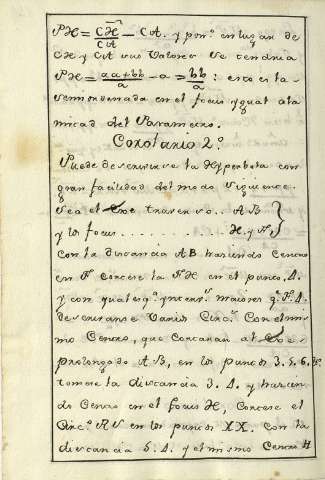 PH = CH² / CA − CA. y pon.ⁿ en lugar de
CH y CA sus Valores Se tendria
PH = aa+bb / a − a = bb / a : esto es la
semiordenada en el focus ygual ala
mitad del Parametro.
Corolario 2.º
Puede descrivirse la Hyperbola con
gran facilidad del modo siguiente.
Sea el Exe traverso.. AB
y los focus .......... H. y F,
con la distancia AB haziendo Centro
en F cortese la FH en el punto 4.
y con qualesq.ª yntens.ˢ maiores q.ᵉ F.4.
descrivanse Varios Circ.ˢ Con el mis
mo Centro, que cortaran al Exe
prolongado AB, en los puntos 3.5.6. &.
tomese la distancia 3.4. y hazien
do Centro en el focus H, Cortese el
Circ.º RS en los puntos XX. Con la
distancia 5.4. y el mismo Centro H